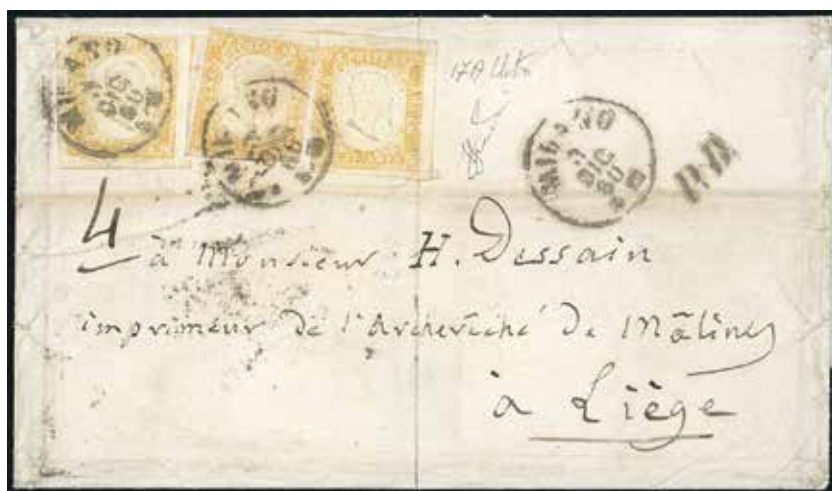 MILANO
MILANO
17A
MILANO
3
DIC
60
P.D.
4
à Monsieur H. Dessain
imprimeur de l'Archevêché de Mâlines
à Liège